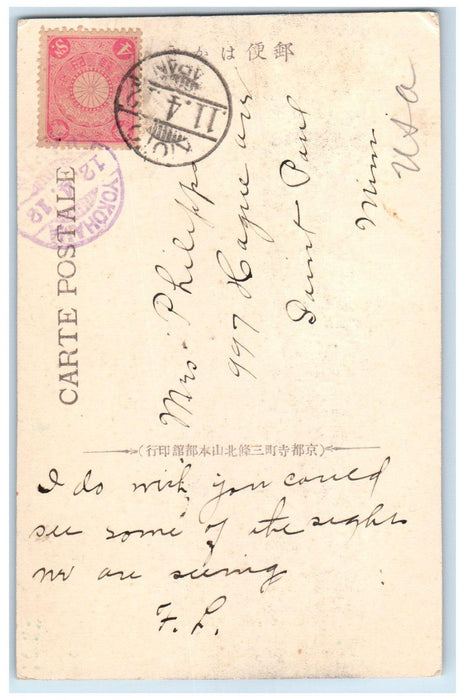 郵便はかき
CARTE POSTALE
4 Sn
JAPAN
11.4
YOKOHA
12
12
Mrs Philipps
997 Hague ave
Saint Paul
Minn
USA
(京都寺町三條北山本都舘印行)
I do wish you could
see some of the sights
we are seeing
F. L.